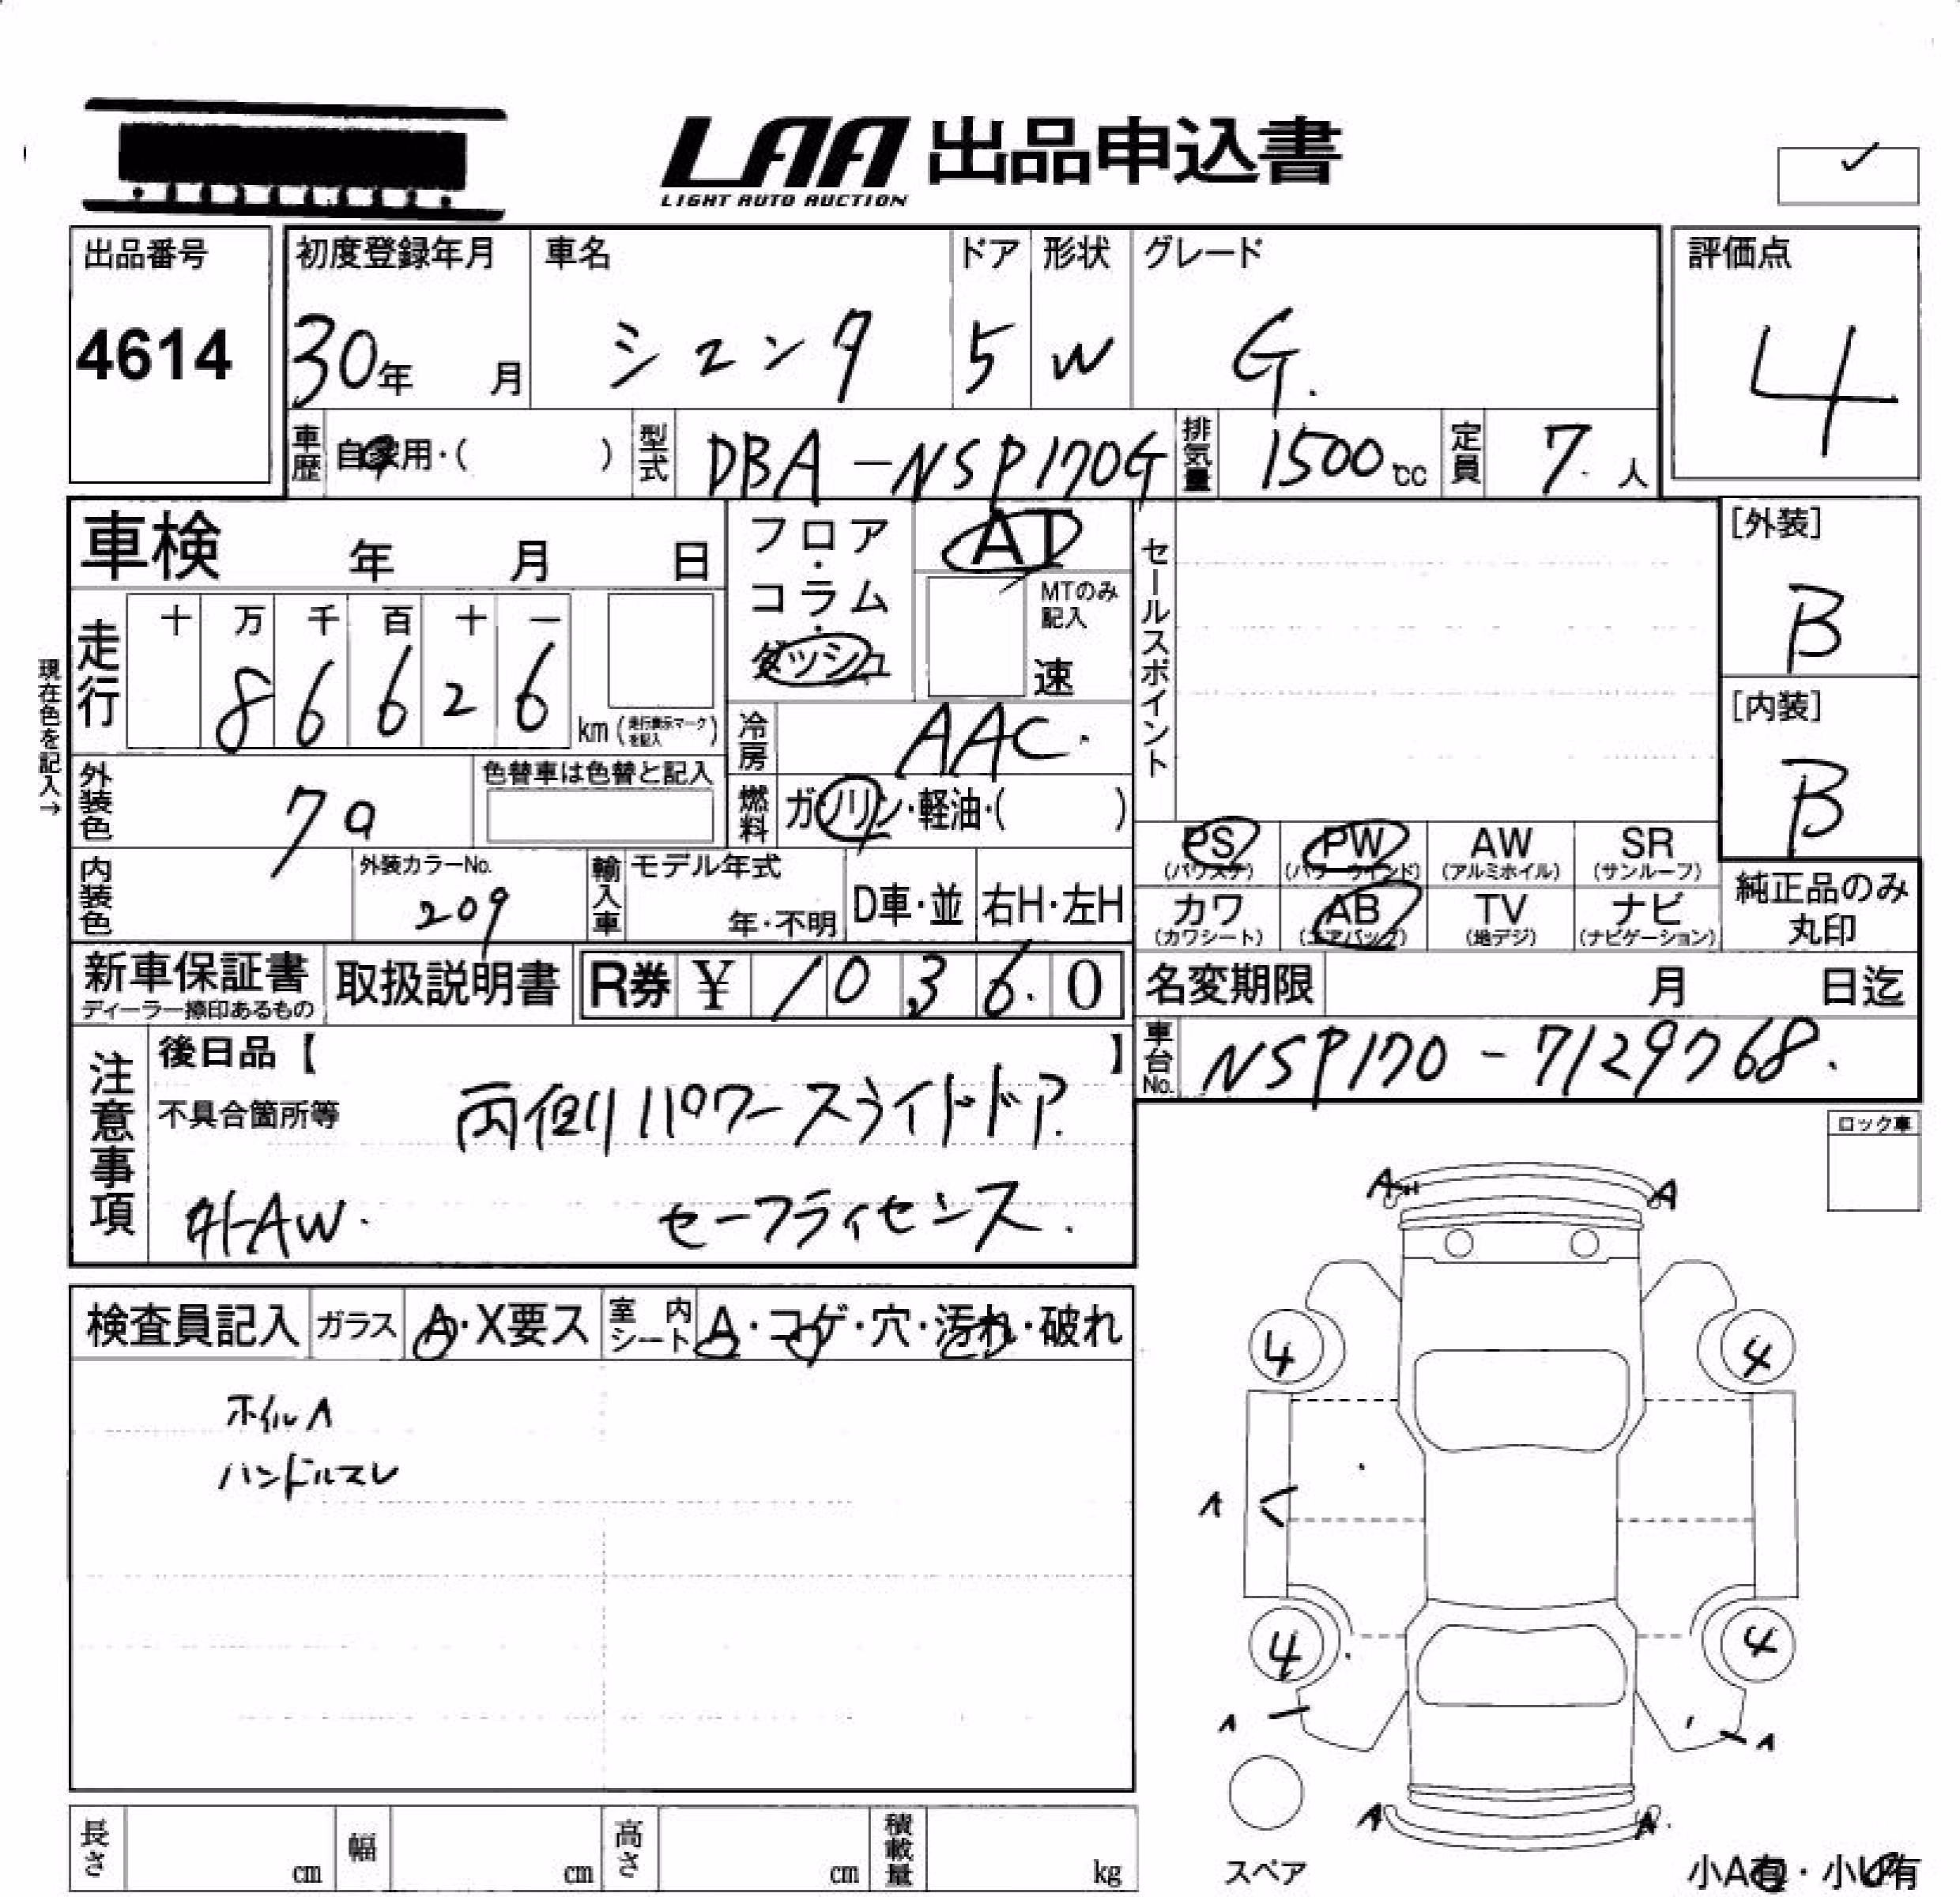 LAA 出品申込書
LIGHT AUTO AUCTION
出品番号
4614
初度登録年月
30年 月
車名
シエンタ
ドア
5
形状
W
グレード
G.
評価点
4
車歴 自家用・( )
型式 DBA-NSP170G
排気量 1500cc
定員 7.人
車検 年 月 日
フロア・コラム・ダッシュ
AT
MTのみ記入
速
セールスポイント
[外装]
B
[内装]
B
現在色を記入→
走行
十 万 千 百 十 一
8 6 6 2 6
km(走行表示マークを記入)
冷房 AAC.
外装色
色替車は色替と記入
燃料 ガソリン・軽油・( )
内装色
外装カラーNo.
209
輸入車
モデル年式
年・不明
D車・並
右H・左H
PS
(パワステ)
PW
(パワーウインド)
AW
(アルミホイル)
SR
(サンルーフ)
カワ
(カワシート)
AB
(エアバッグ)
TV
(地デジ)
ナビ
(ナビゲーション)
純正品のみ
丸印
新車保証書
ディーラー捺印あるもの
取扱説明書
R券 ¥ 1 0 3 6. 0
名変期限 月 日迄
車台No. NSP170-7129768.
注意事項
後日品【 】
不具合箇所等
両側パワースライドドア.
外AW.
セーフライセンス.
ロック車
検査員記入
ガラス A・X要ス
室内シート A・コゲ・穴・汚れ・破れ
ホイルA
ハンドルスレ
A A
4 4
A
4 4
A A
A A.
スペア
小A有・小U有
長さ cm
幅 cm
高さ cm
積載量 kg